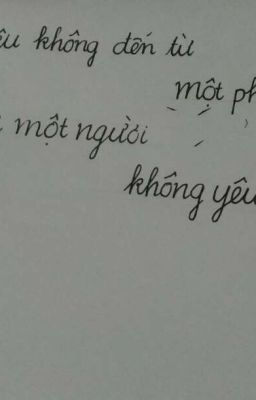 không đến từ
một
một người
không yêu